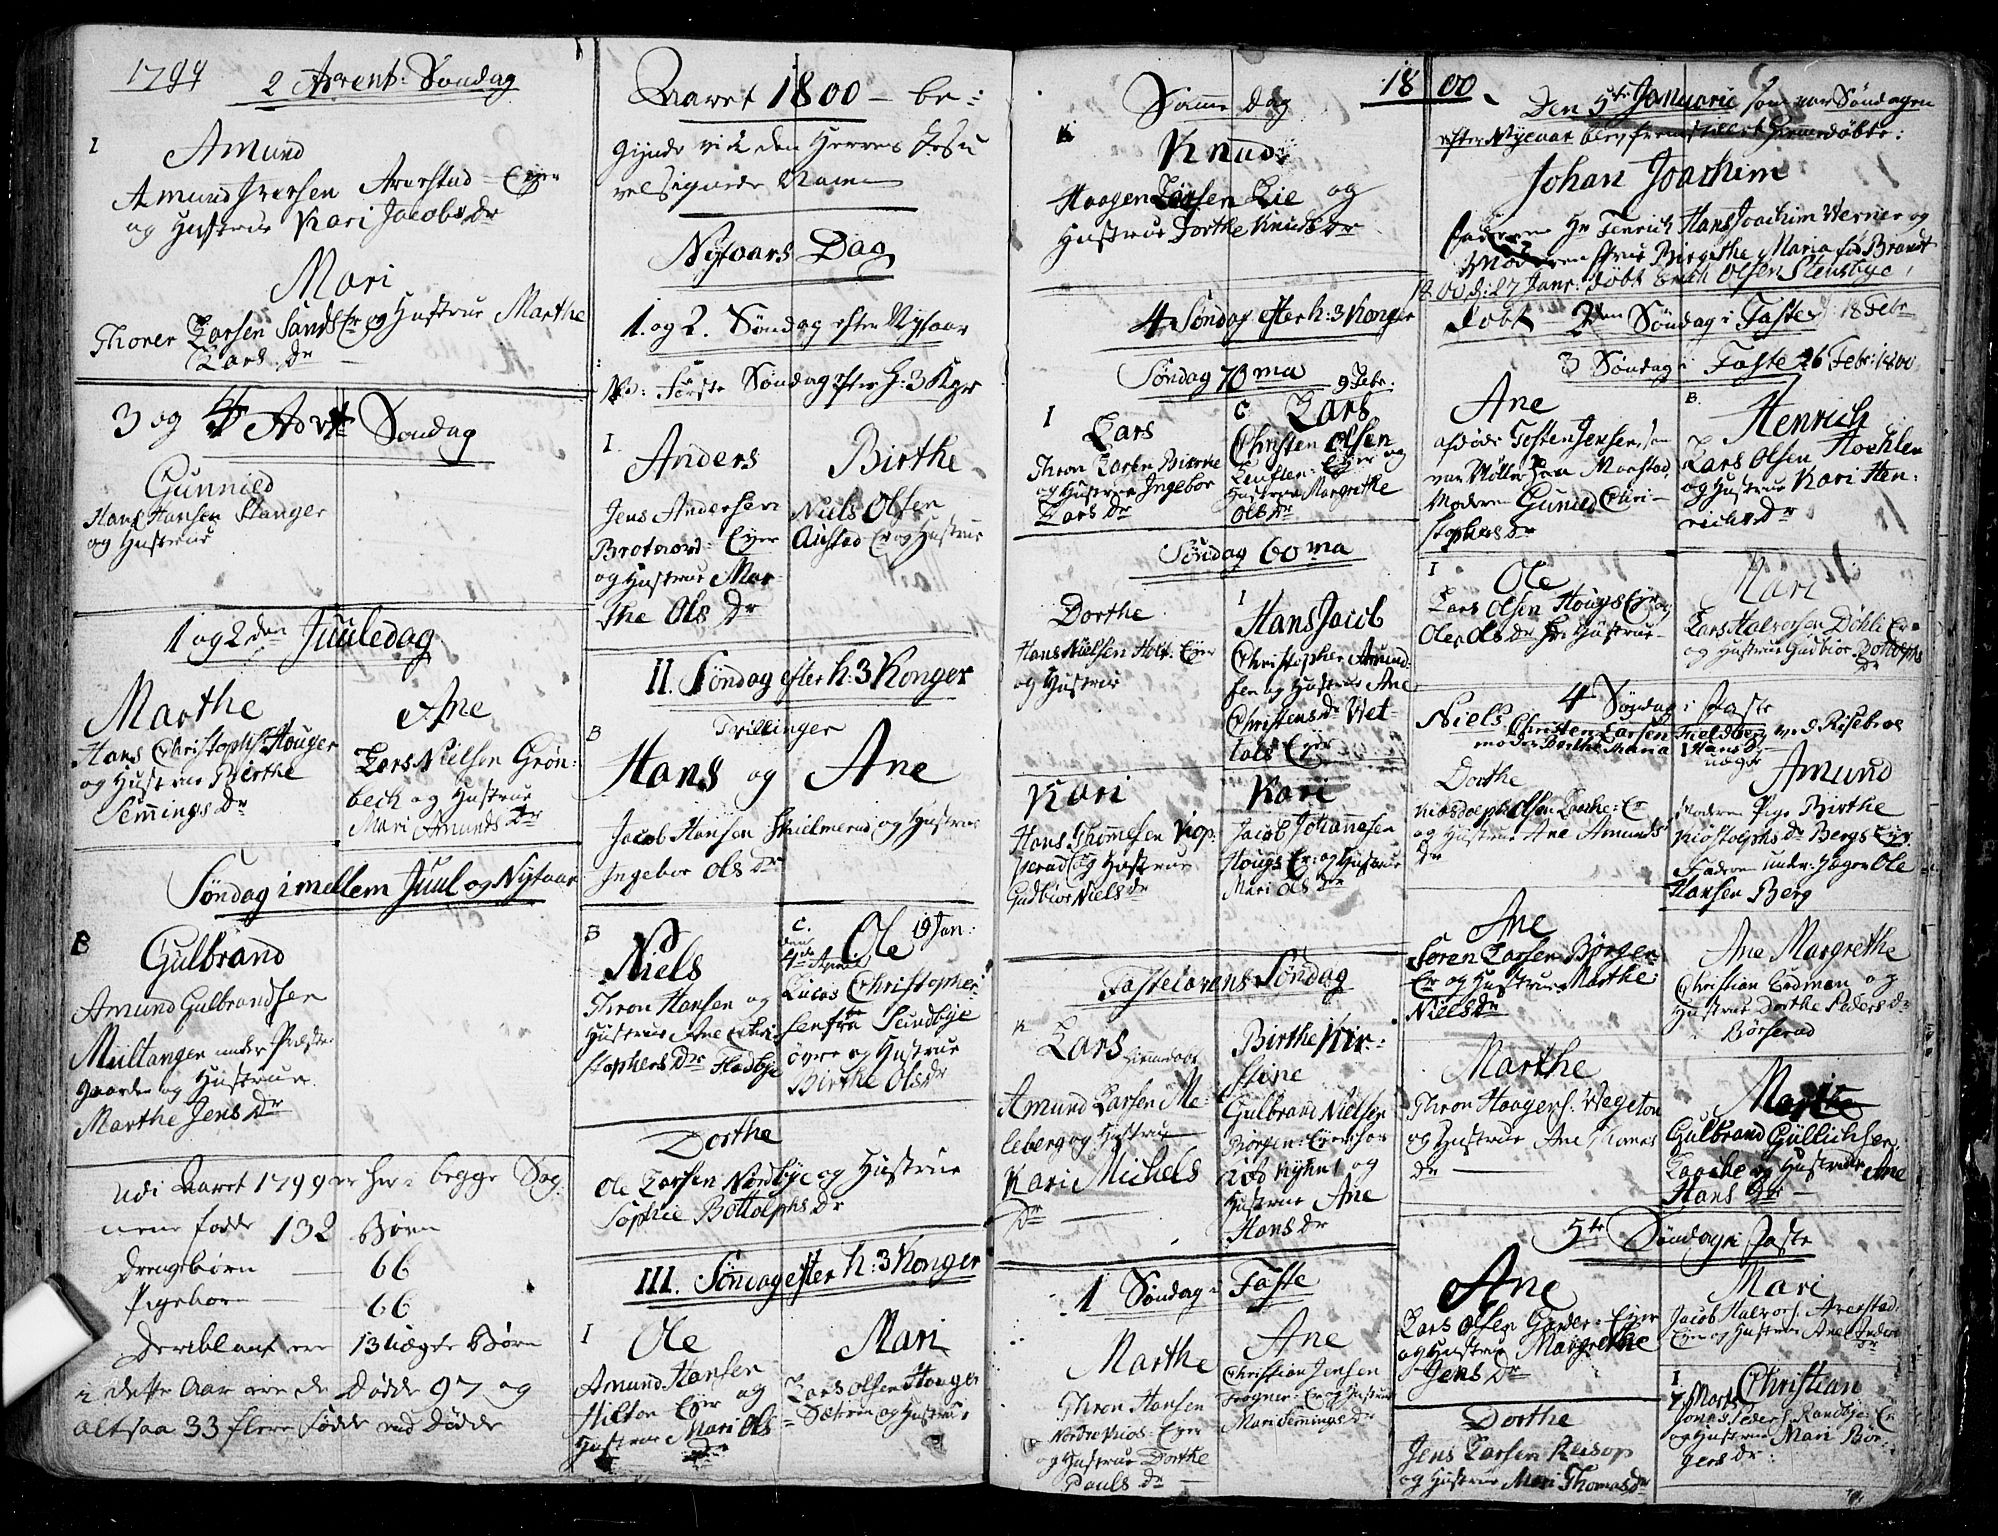 1799
2 Advent: Søndag
I
Amund
Amund Iversen Averstad Ejer
og Hustrue Kari Jacobs Dr
Mari
Thorer Larsen Sands Er og Hustrue Marthe
Lars: Dr
3 og 4 Advt Søndag
Gunnild
Hans Hansen Stanger
og Hustrue
1 og 2den Juuledag
Marthe
Hans Christophs: Houger
og Hustrue Birthe
Semmings Dr
Ane
Lars Nielsen Grøn:
beck og Hustrue
Mari Amunds Dr
Søndag imellem Juul og Nytaar
B
Gulbrand
Amund Gulbrandsen
Multangen under Præste
gaarden og Hustrue
Marthe Jens Dr
udi Aaret 1799 er her i begge Sog
nene fødde 132 Børn
Drengebørn 66
Pigebørn 66
Deriblant ere 13 uægte Børn
i dette Aar ere de Dødde 97 og
altsaa 33 flere fødde end Dødde
Aaret 1800 – be:
gynde vi i den Herres Jesu
velsignede Navn
Nytaars Dag
1. og 2. Søndag efter Nytaar
No: Første Søndag efter H: 3 Kgr
I
Anders
Jens Andersen
Brotnord: Ejer
og Hustrue Mar
the Ols Dr
Birthe
Niels Olsen
Aústad Er og Hustrue
II. Søndag efter h: 3 Konger
Tvillinger
B
Hans og Ane
Jacob Hansen Hielmerud og Hustrue
Ingebor Ols Dr
B
Niels
Thron Hansen og
Hustrue Ane Chri
stophers Dr Fladbye
C.
den
4de April
Ole 19 Jan:
Lucas Christopher
sen fra Sundbye
øvre og Hustrue
Birthe Ols Dr
Dorthe
Ole Larsen Nordbye og Hustrue
Sophie Bottolphs Dr
III. Søndag efter h: 3 Konger
I
Ole
Amund Hansen
Hilton Ejer og
Hustrue Mari Ols
Dr
Mari
Lars Olsen Houger
Sætren og Hustrue
1800.
Samme Dag
Knud
Haagen Larsen Lie og
Hustrue Dorthe Knuds Dr
4 Søndag efter h: 3 Konger
Søndag 70ma 9 Febr:
I
Lars
Thron Larsen Bierke
og Hustrue Ingebor
Lars Dr
C
Lars
Christen Olsen
Ejer og
Hustrue Margrethe
Ols Dr
Søndag 60ma
Dorthe
Hans Nielsen Holt: Ejer
og Hustrue
I
Hans Jacob
Christopher Amund
sen og Hustrue Ane
Christens Dr Wet
tals Ejer
Kari
Hans Thommesen Kop
perud og Hustrue
Gudbior Niels Dr
Kari
Jacob Johannesen
Hougs Er: og Hustrue
Mari Ols Dr
Fastelavens Søndag
Lars hiemedøbt
Amund Larsen Me
leberg og Hustrue
Kari Michels
Dr
Birthe Kir:
stine
Gulbrand Nielsen
Hustrue Ane
Hans Dr
1 Søndag i Faste
Marthe
Thron Hansen
Nordre Kios: Ejer
og Hustrue Dorthe
Pauls Dr
Ane
Christian Jensen
Frogner: Er og Hustrue
Mari Semings Dr
Den 5te Januarii som var Søndagen
efter Nytaar blev fremstillet hiemedøbte:
Johan Joachim
Faderen Hr Fenrich Hans Joachim Werner og
Moderen Frue Birgithe Maria fød Brandt
1800 d: 27 Janr: døbt Erich Olsen Stensbye
Døbt – 2den Søndag i Faste d: 18 Febr
3 Søndag i Faste 26 Febr: 1800
Ane
afdøde Tosten Jensen, som
var Møller fra Mogstad,
Moderen Gunild Chri
stophers Dr
B.
Henrich
Lars Olsen Hoehlen
og Hustrue Kari Hen:
richs Dr
I
Ole
Lars Olsen Hougs Ejer og
Hustrue
Mari
Lars Halvorsen Døhli Er
og Hustrue Gudbior Bottolphs
Dr
4 Søndag i Faste
Niels Christen Larsen Fieldberg ved Risebroe
moder Dorthe Maria Hans Dr
uægte
Dorthe
og Hustrue Ane Amunds
Dr
Amund
Moderen Pige Birthe
Kiøstolphs Dr Bergs Ejer
Faderen under: Jæger Ole
Hansen Berg
Ane
Søren Larsen Børger
Er og Hustrue Marthe
Niels Dr
Ane Margrethe
Christian Erdman og
Hustrue Dorthe Peders Dr
Børserud
Marthe
Thron Haagens: Wegeton
og Hustrue Ane Thores
Dr
Marthe
Gulbrand Gullichsen
Laache og Hustrue Ane
Hans Dr
5te Søndag i Faste
Ane
Lars Olsen Garder: Ejer
og Hustrue Margrethe
Jens Dr
Mari
Jacob Halvors: Averstad
Ejer og Hustrue Ane Anders
Dr
I
Christian
Jonas Peders: Randbye: Er
og Hustrue Mari Bør:
gers Dr
Dorthe
Jens Larsen Reisop
og Hustrue Mari Thomas Dr